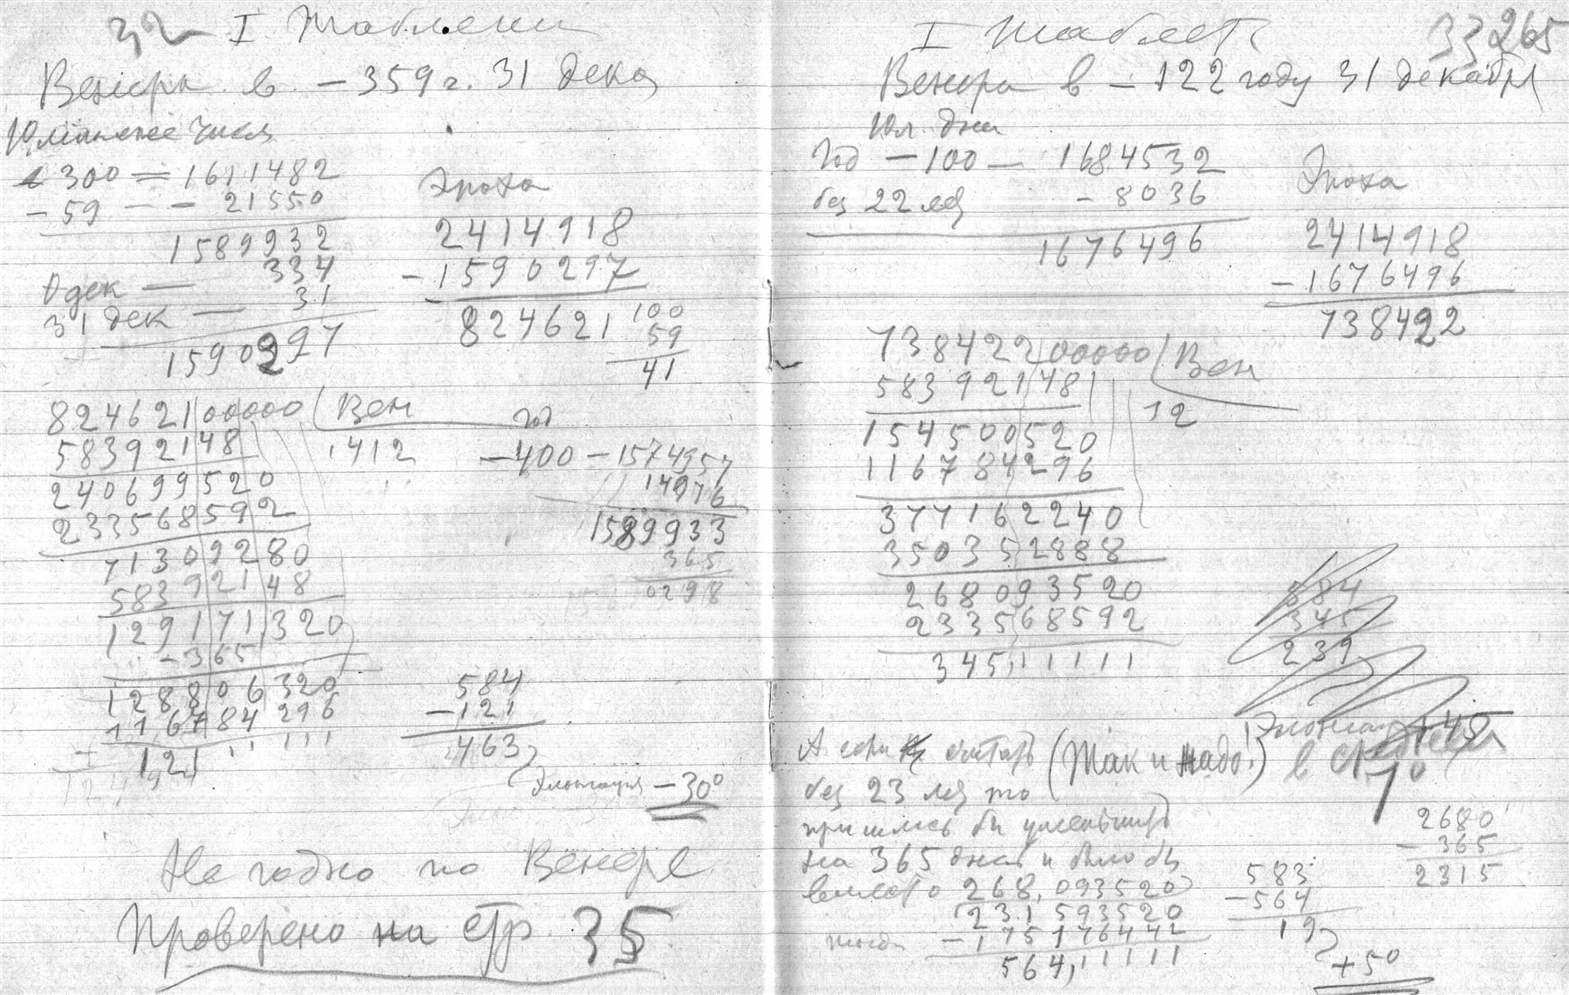 32 I Таблени
Венера в -359 г. 31 дека
Юлианские числа
-300 = 1611482
-59 - - 21550
1589932
0 дек — 334
31 дек — 31
1590297
Эпоха
2414918
-1590297
824621
100
59
41
82462100000 Вен
58392148 1412
240699520
233568592
71309280
58392148
129171320
-365
128806320
116784296
121,11111
год
-400 - 1574957
14976
1589933
365
0298
584
-121
463
Элонгация -30°
Не годно по Венере
Проверено на стр. 35
I Таблет 33 265
Венера в -122 году 31 декабря
Юл. дни
Год -100 — 1684532
без 22 лет - 8036
1676496
Эпоха
2414918
-1676496
738422
73842200000 Вен
58392148 12
154500520
116784296
377162240
350352888
268093520
233568592
345,11111
584
345
239
Элонгац +45
в среднем
1°
А если считать (Так и надо!)
без 23 лет то
пришлось бы уменьшить
на 365 дней и было бы
вместо 268,093520
231593520
тогда -175176442
564,11111
2680
-365
2315
583
-564
19
+5°